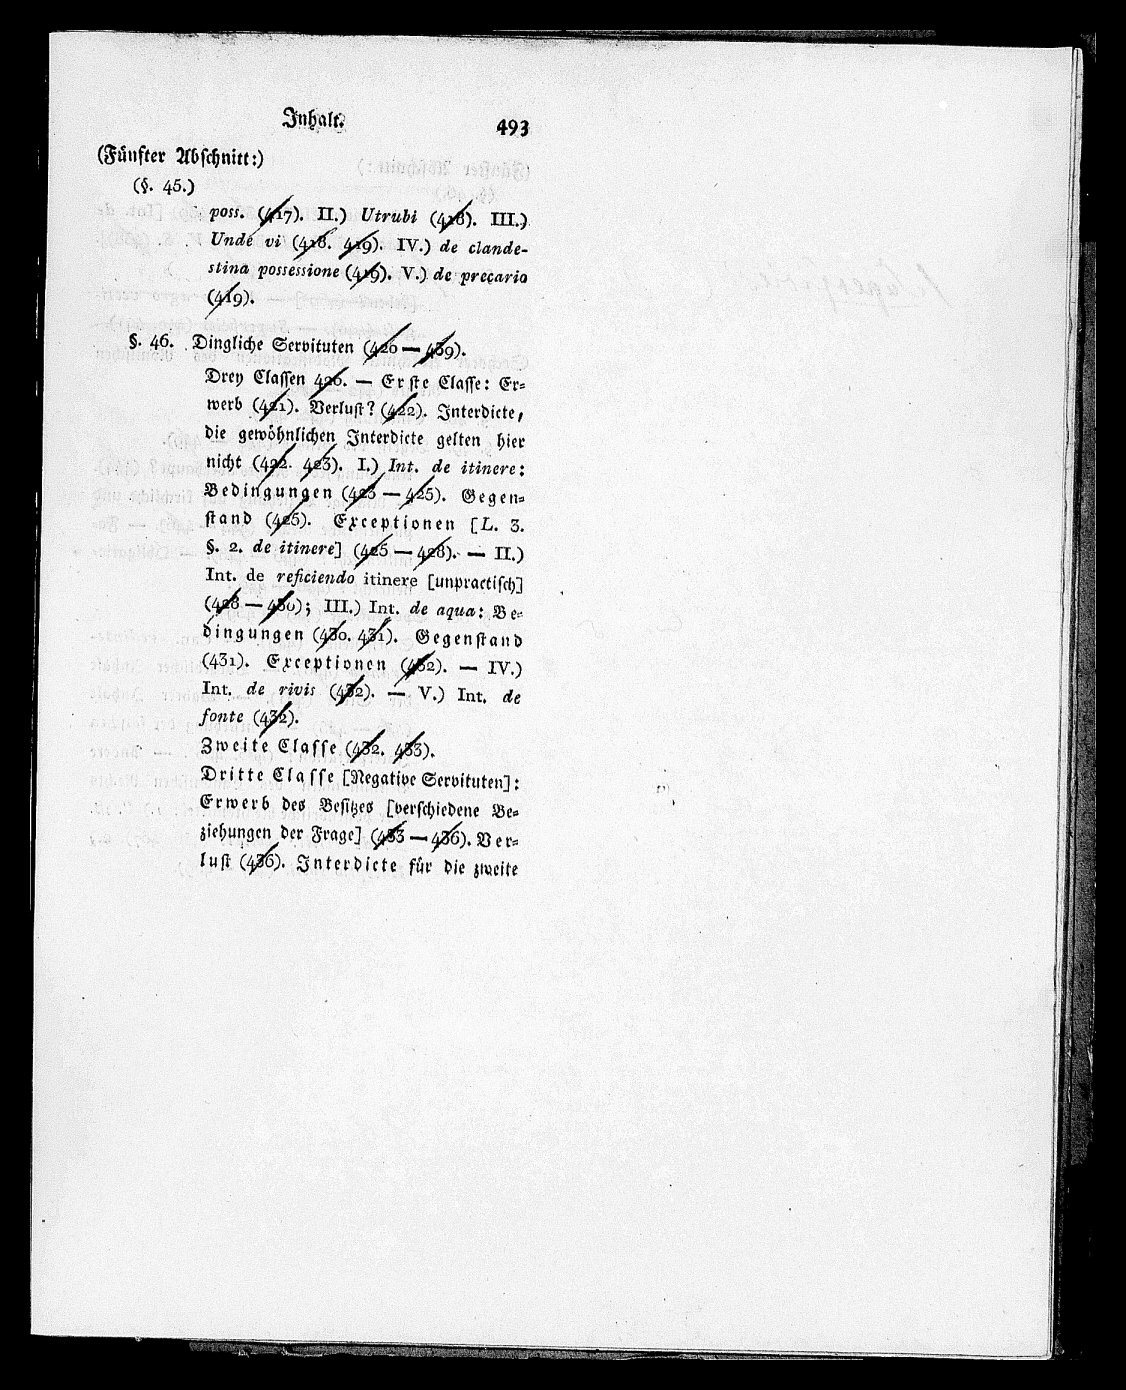 Inhalt.
493
(Fünfter Abschnitt:)
(§. 45.)
poss. (417). II.) Utrubi (418). III.)
Unde vi (418. 419). IV.) de clande-
stina possessione (419). V.) de precario
(419).
§. 46. Dingliche Servituten (420 — 439).
Drey Classen 420. — Erste Classe: Er-
werb (421). Verlust? (422). Interdicte,
die gewöhnlichen Interdicte gelten hier
nicht (422. 423). I.) Int. de itinere:
Bedingungen (423 — 425). Gegen-
stand (425). Exceptionen [L. 3.
§. 2. de itinere] (425 — 428). — II.)
Int. de reficiendo itinere [unpractisch]
(428 — 430); III.) Int. de aqua: Be-
dingungen (430. 431). Gegenstand
(431). Exceptionen (432). — IV.)
Int. de rivis (432). — V.) Int. de
fonte (432).
Zweite Classe (432. 433).
Dritte Classe [Negative Servituten]:
Erwerb des Besitzes [verschiedene Be-
ziehungen der Frage] (433 — 436). Ver-
lust (436). Interdicte für die zweite